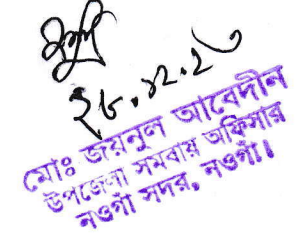 ২৮.১২.২০
মোঃ জয়নুল আবেদীন
উপজেলা সমবায় অফিসার
নওগাঁ সদর, নওগাঁ।